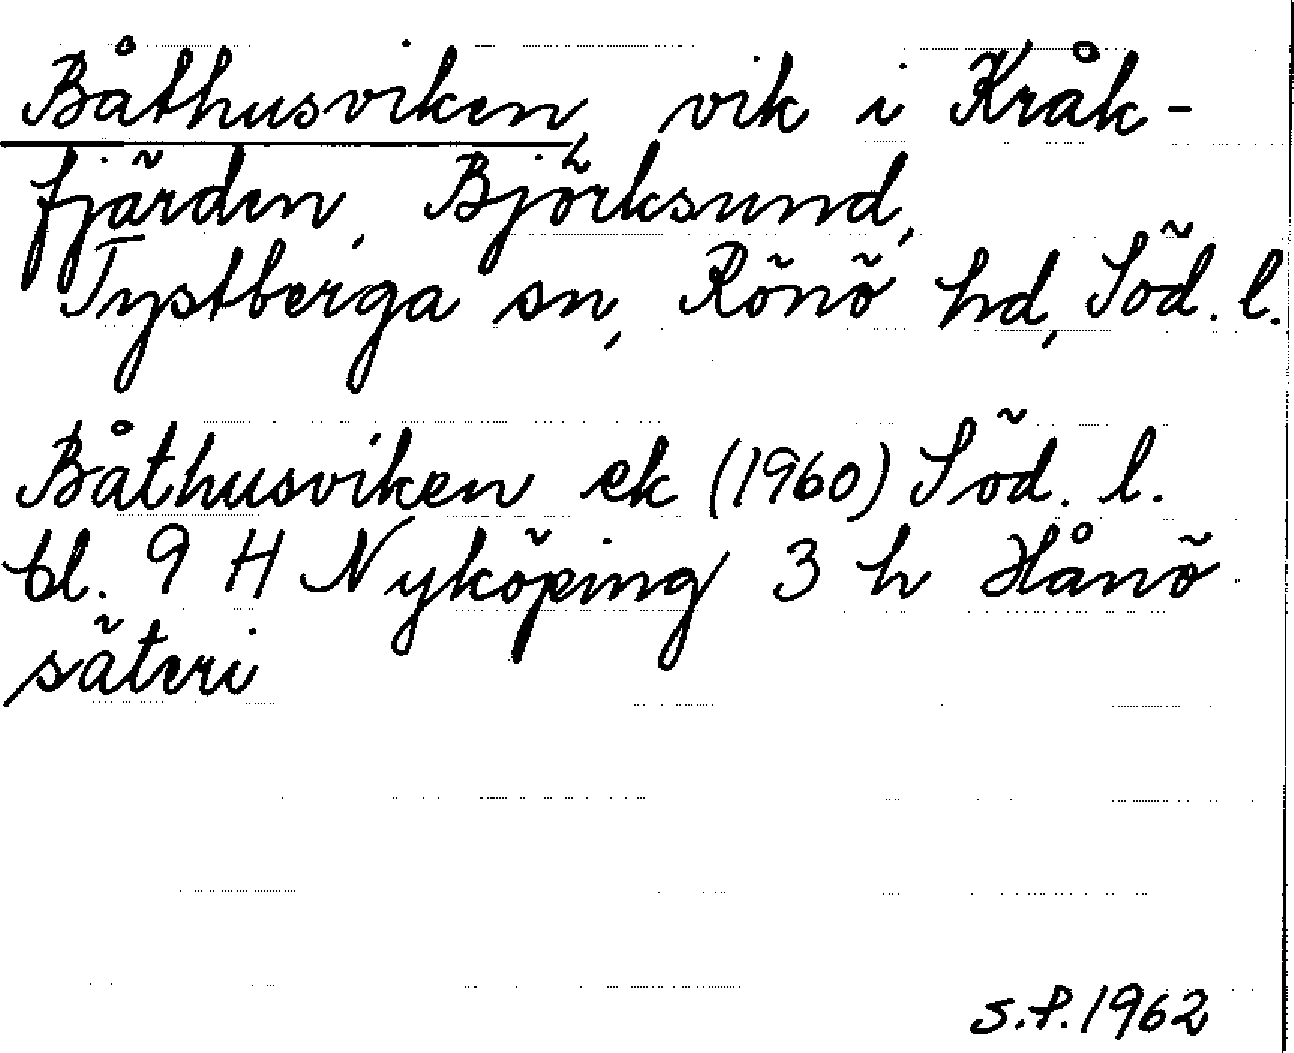 Båthusviken, vik i Kråk-
fjärden, Björksund,
Tystberga sn, Rönö hd, Söd. l.
Båthusviken ek (1960) Söd. l.
bl. 9 H Nyköping 3 h Hånö
säteri
S.P. 1962